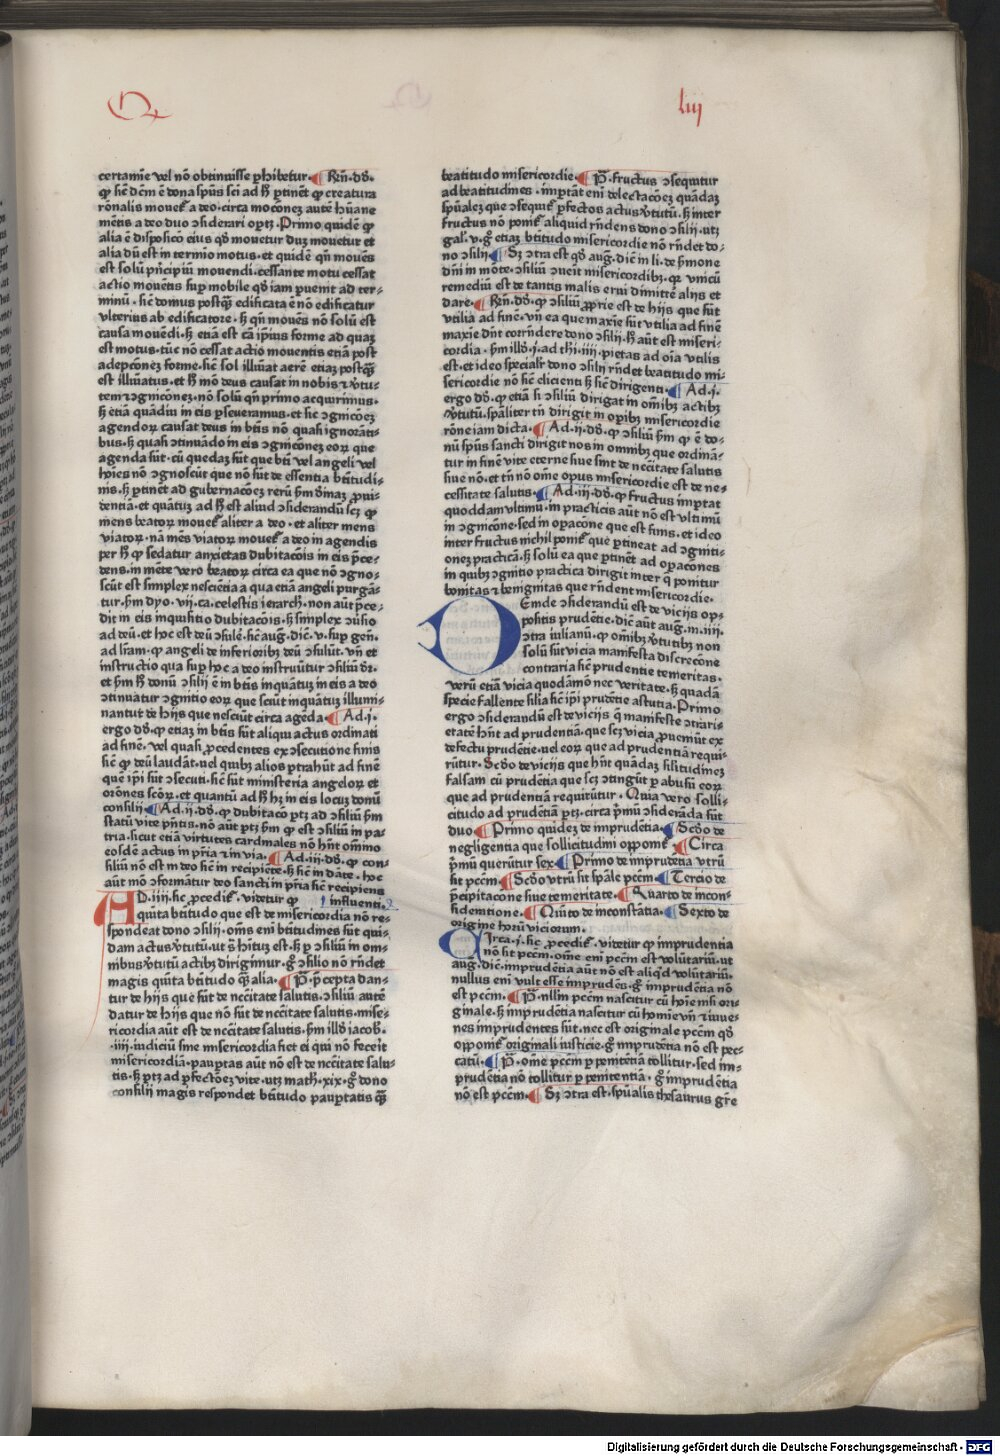 Q
liij
certamīe vel nō obtinuisse ꝑhibetur. Rn̄. dd̄.
ꝙ sic̄ dcm̄ ē dona spūs scī ad hͦ ꝑtinēt ꝙ creatura
rōnalis mouet͛ a deo. circa mocōnez autē hūane
mētis a deo duo ↄsiderari oportꝫ. Primo quidē ꝙ
alia ē dispositio eius qd̄ mouetur duꝫ mouetur et
alia dū est in termīo motus. et quidē qn̄ mouēs
est solū pn̄cipiū mouendi. cessante motu cessat
actio mouētis suꝑ mobile qd̄ iam ꝑuenit ad ter-
minū. sic̄ domus postqͣꝫ edificata ē nō edificatur
vlterius ab edificatore. sꝫ qn̄ mouēs nō solū est
causa mouēdi. sꝫ etiā est cā ip̄ius forme ad quaꝫ
est motus. tūc nō cessat actio mouentis etiā post
adepcōnez forme. sic̄ sol illūiat aerē etiaꝫ postqͣꝫ
est illūiatus. et hͦ mō deus causat in nobis ⁊ v̄tu-
tem ⁊ ꝯgnicōneꝫ. nō solū qn̄ primo acquirimus.
sꝫ etiā quādiu in eis ꝑseueramus. et sic ꝯgnicōeꝫ
agendoꝝ causat deus in btīs nō quasi ignorāti-
bus. sꝫ quasi ꝯtinuādo in eis ꝯgnicōnez eoꝝ que
agenda sūt. cū quedaꝫ sūt que btī vel angeli vel
hoīes nō ꝯgnoscūt que nō sūt de essentia btitudi-
nis. sꝫ ꝑtinēt ad gubernacōeꝫ rerū ẜm diuināꝫ ꝓui-
dentiā. et quātuꝫ ad hͦ est aliud ↄsiderandū scꝫ ꝙ
mens beatoꝝ mouet͛ aliter a deo. et aliter mens
viatoꝝ. nā mēs viatoꝝ mouet͛ a deo in agendis
per hͦ ꝙ sedatur anxietas dubitacōis in eis p̄ce-
dens. in mēte vero beatoꝝ circa ea que nō ꝯgno-
scūt est simplex nescientia a qua etiā angeli purgā-
tur. ẜm dyo. vij. ca. celestis ierarch. non aūt p̄ce-
dit in eis inquisitio dubitacōis. sꝫ simplex ꝯuersio
ad deū. et hoc est deū ↄsulē. sic̄ aug. dic̄. v. suꝑ gen̄.
ad lr̄am. ꝙ angeli de inferioribꝫ deū ↄsulūt. vn̄ et
instructio qua suꝑ hoc a deo instruūtur ↄsiliū dr̄.
et ẜm hͦ donū ↄsilij ē in btīs inquātuꝫ in eis a deo
ↄtinuatur ꝯgnitio eoꝝ que sciūt inquātuꝫ illumi-
nantut de hijs que nesciūt circa agēda. Ad .j.
ergo dd̄. ꝙ etiaꝫ in btīs sūt aliqui actus ordinati
ad finē. vel quasi ꝓcedentes ex ↄsecutione finis
sic̄ ꝙ deū laudāt. vel quibꝫ alios ꝑtrahūt ad finē
quē ip̄i sūt ↄsecuti. sic̄ sūt ministeria angeloꝝ et
orōnes scōꝝ. et quantū ad hͦ hꝫ in eis locuꝫ donū
consilij. Ad .ij. dd̄. ꝙ dubitaco ꝑtꝫ ad ↄsiliū ẜm
statū vite pn̄tis. nō aūt ꝑtꝫ ẜm ꝙ est ↄsiliū in pa-
tria. sicut etiā virtutes cardinales nō hn̄t omīno
eosdē actus in pr̄ia ⁊ in via. Ad .iij. dd̄. ꝙ con-
siliū nō est in deo sic̄ in recipiēte. sꝫ sic̄ in dāte. hoc
aūt mō ↄformātur deo sancti in pr̄ia sic̄ recipiens
AD .iiij. sic ꝓcedit͛. videtur ꝙ influenti.
quīta btitudo que est de misericordia nō re-
spondeat dono ↄsilij. om̄s eni btitudines sūt qui-
dam actus v̄tutū. ut s̄ hītuꝫ est. sꝫ ꝑ ↄsiliū in om-
nibus v̄tutū actibꝫ dirigimur. gͦ ↄsilio nō rn̄det
magis quīta btitudo qͣꝫ alia. P̄. p̄cepta dan-
tur de hijs que sūt de nccītate salutis. ↄsiliū autē
datur de hijs que nō sūt de nccītate salutis. mise-
ricordia aūt est de nccītate salutis. ẜm illd̄ iacob.
.iiij. iudiciū sine misericordia fiet ei qui nō feceit
misericordiā. pauꝑtas aūt nō est de nccītate salu-
tis. sꝫ ꝑtꝫ ad ꝑfectōeꝫ vite. utꝫ math. xix. gͦ dono
consilij magis respondet btitudo pauꝑtatis qͣꝫ
beatitudo misericordie. P̄. fructus ↄsequūtur
ad beatitudines. imꝑtāt eni delectacōeꝫ quādaꝫ
spūaleꝫ que ↄsequit͛ ꝑfectos actus v̄tutū. sꝫ inter
fructus nō ponit͛ aliquid rn̄dens dono ↄsilij. utꝫ
gal. v. gͦ etiaꝫ btitudo misericordie nō rn̄det do-
no ↄsilij. Sꝫ ↄtra est qd̄ aug. dic̄ in li. de ẜmone
dn̄i in mōte. ↄsiliū ꝯueīt misericordibꝫ. qꝛ vnicū
remediū est de tantis malis erui dimittē alijs et
dare. Rn̄. dd̄. ꝙ ↄsiliū ꝓprie est de hijs que sūt
vtilia ad finē. vn̄ ea que maxie sūt vtilia ad finē
maxie dn̄t corrn̄dere dono ↄsilij. hͦ aūt est miseri-
cordia. ẜm illd̄. j. ad thi. iiij. pietas ad oīa vtilis
est. et ideo specialr̄ dono ↄsilij rn̄det beatitudo mi-
sericordie nō sic̄ elicienti sꝫ sic̄ dirigenti. Ad .j.
ergo dd̄. ꝙ etiā si ↄsiliū dirigat in om̄ibꝫ actibꝫ
v̄tutū. spāliter tn̄ dirigit in oꝑibꝫ misericordie
rōne iam dicta. Ad .ij. dd̄. ꝙ ↄsiliū ẜm ꝙ ē do-
nū spūs sancti dirigit nos in omnibꝫ que ordinā-
tur in finē vite eterne siue sint de nccītate salutis
siue nō. et tn̄ nō om̄e opus misericordie est de ne-
cessitate salutis. Ad .iij. dd̄. ꝙ fructus imꝑtat
quoddam vltimū. in practicis aūt nō est vltimū
in ꝯgnicōne. sed in oꝑacōne que est finis. et ideo
inter fructus nichil ponit͛ que ꝑtineat ad ꝯgniti-
oneꝫ practicā. sꝫ solū ea que ꝑtinēt ad oꝑacōnes
in quibꝫ ꝯgnitio practica dirigit inter q̄ ponitur
bonitas ⁊ benignitas que rn̄dent misericordie.
DEinde ↄsiderandū est de vicijs op-
positis prudētie. dic̄ aūt aug. in. iiij.
ↄtra iulianū. ꝙ om̄ibꝫ v̄tutibꝫ non
solū sūt vicia manifesta discrecōne
contraria sic̄ prudentie temeritas.
verū etiā vicia quodāmō nec veritate. sꝫ quadā
specie fallente silia sic̄ ip̄i prudētie astutia. Primo
ergo ↄsiderandū est de vicijs q̄ manifeste ↄtrari-
etatē hn̄t ad prudentiā. que scꝫ vicia ꝓueniūt ex
defectu prudētie. uel eoꝝ que ad prudentiā requi-
rūtur. Scd̄o de vicijs que hn̄t quādaꝫ silitudineꝫ
falsam cū prudētia que scꝫ ↄtingūt ꝑ abusū eoꝝ
que ad prudentiā requirūtur. Quia vero solli-
citudo ad prudentiā ꝑtꝫ. circa p̄mū ↄsiderāda sūt
duo. Primo quideꝫ de imprudētia. Scd̄o de
negligentia que sollicitudini opponit͛. Circa
p̄mū querūtur sex. Primo de imprudētia vtrū
sit pccm̄. Scd̄o vtrū sit spāle pccm̄. Tercio de
p̄cipitacōne siue temeritate. Quarto de incon-
sideratione. Quīto de inconstātia. Sexto de
origine horū viciorum.
CIrca .j. sic ꝓcedit͛. videtur ꝙ imprudentia
nō sit pccm̄. om̄e eni pccm̄ est volūtariū. ut
aug. dic̄. imprudētia aūt nō est aliqd̄ volūtariū.
nullus eni vult esse imprudēs. gͦ imprudētia nō
est pccm̄. P̄. nllm̄ pccm̄ nascitur cū hoīe nisi ori-
ginale. sꝫ imprudētia nascitur cū homīe vn̄ ⁊ iuue-
nes imprudentes sūt. nec est originale pccm̄ qd̄
opponit͛ originali iusticie. gͦ imprudētia nō est pec-
catū. P̄. om̄e pccm̄ ꝑ penitētiā tollitur. sed im-
prudētia nō tollitur ꝑ penitentiā. gͦ imprudētia
nō est pccm̄. Sꝫ ↄtra est. spūalis thesaurus gr̄e
Digitalisierung gefördert durch die Deutsche Forschungsgemeinschaft - DFG